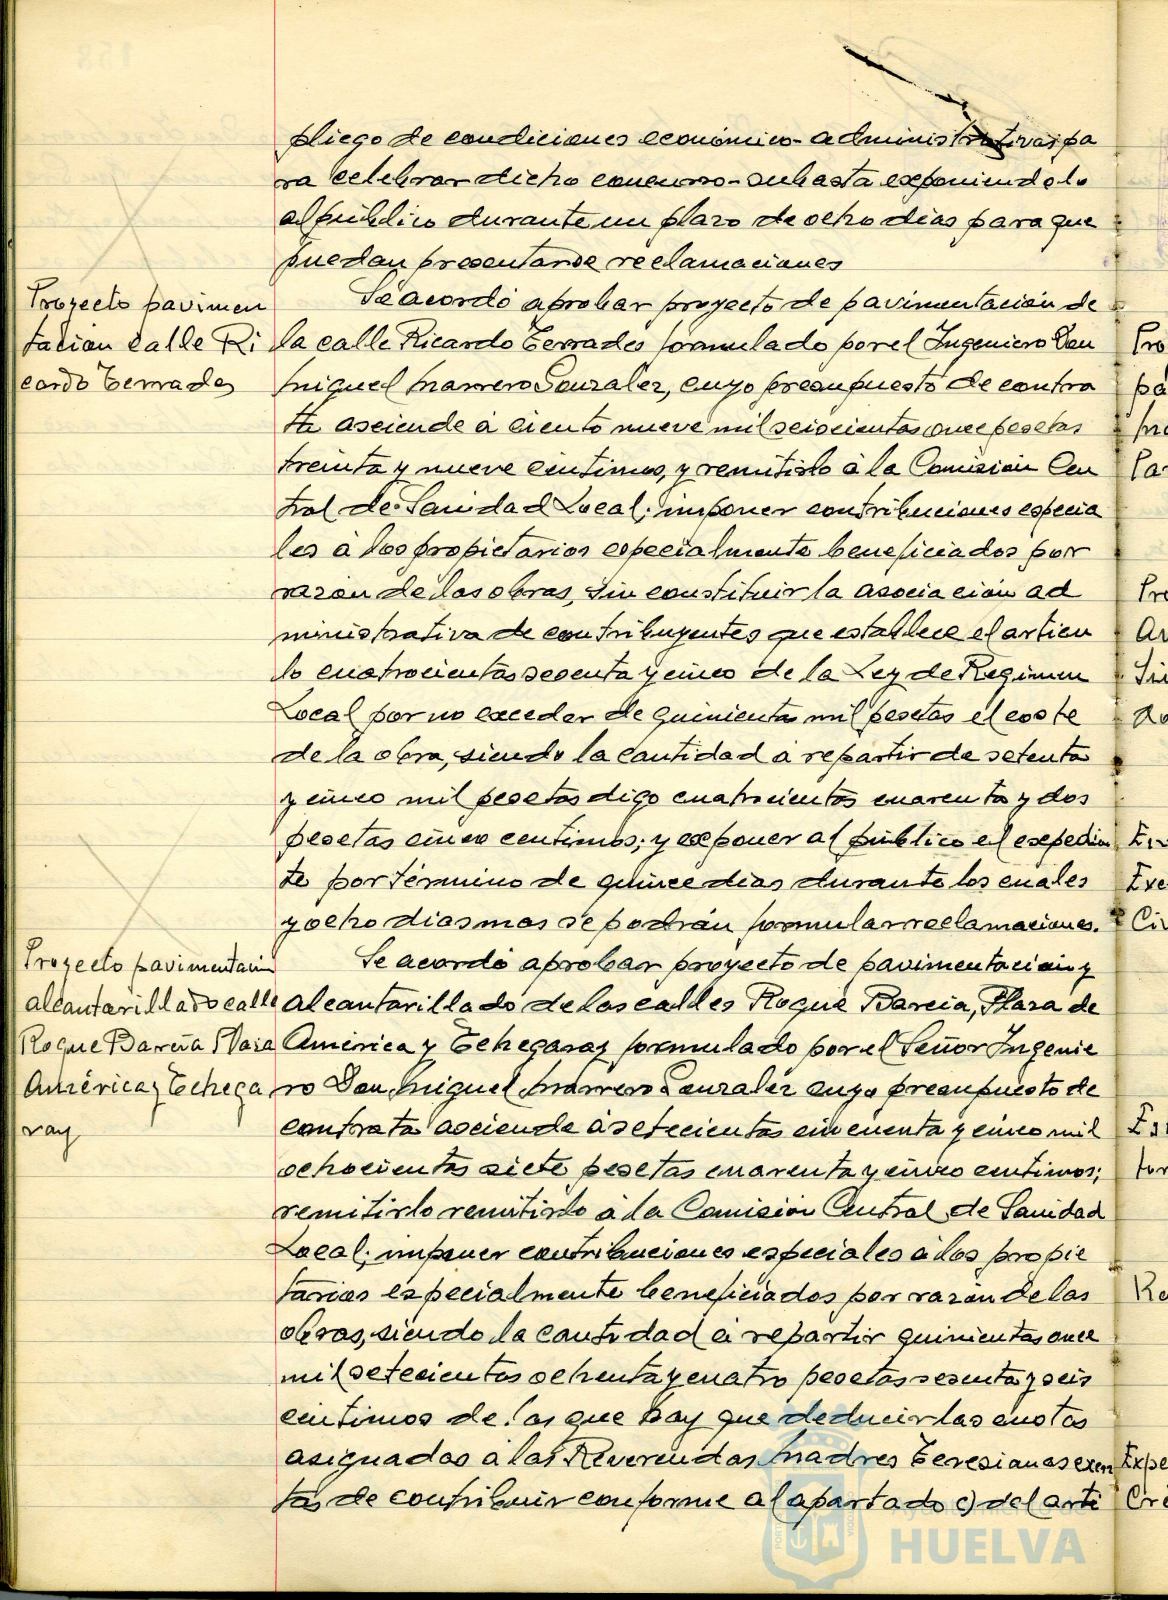 pliego de condiciones económico-administrativas pa
ra celebrar dicho concurso-subasta exponiendolo
al público durante un plazo de ocho dias para que
puedan presentarse reclamaciones
Proyecto pavimen
tacion calle Ri
cardo Terrades
Se acordó aprobar proyecto de pavimentación de
la calle Ricardo Terrades formulado por el Ingeniero Don
Miguel Marrero Gonzalez, cuyo presupuesto de contra
ta asciende á ciento nueve mil seiscientas once pesetas
treinta y nueve centimos, y remitirlo á la Comisión Cen
tral de Sanidad Local; imponer contribuciones especia
les á los propietarios especialmente beneficiados por
razon de las obras, sin constituir la asociación ad
ministrativa de contribuyentes que establece el articu
lo cuatrocientos sesenta y cinco de la Ley de Regimen
Local por no exceder de quinientas mil pesetas el coste
de la obra, siendo la cantidad á repartir de setenta
y cinco mil pesetas digo cuatrocientas cuarenta y dos
pesetas cinco centimos; y exponer al público el expedien
te por término de quince dias durante los cuales
y ocho dias mas se podrán formular reclamaciones.
Proyecto pavimentación
alcantarillado calle
Roque Barcia Plaza
América y Echega
ray
Se acordó aprobar proyecto de pavimentación y
alcantarillado de las calles Roque Barcia, Plaza de
América y Echegaray formulado por el Señor Ingenie
ro Don Miguel Marrero Gonzalez cuyo presupuesto de
contrata asciende á setecientas cincuenta y cinco mil
ochocientas siete pesetas cuarenta y cinco centimos;
remitirlo remitirlo á la Comisión Central de Sanidad
Local; imponer contribuciones especiales á los propie
tarios especialmente beneficiados por razón de las
obras, siendo la cantidad á repartir quinientas once
mil setecientas ochenta y cuatro pesetas sesenta y seis
centimos de las que hay que deducir las cuotas
asignadas á las Reverendas Madres Teresianas exen
tas de contribuir conforme al apartado c) del arti
Pro
pa
Pa
Pro
Ar
Sin
do
Exe
Civ
for
Re
Expe
Cré
Ayuntamiento de
HUELVA